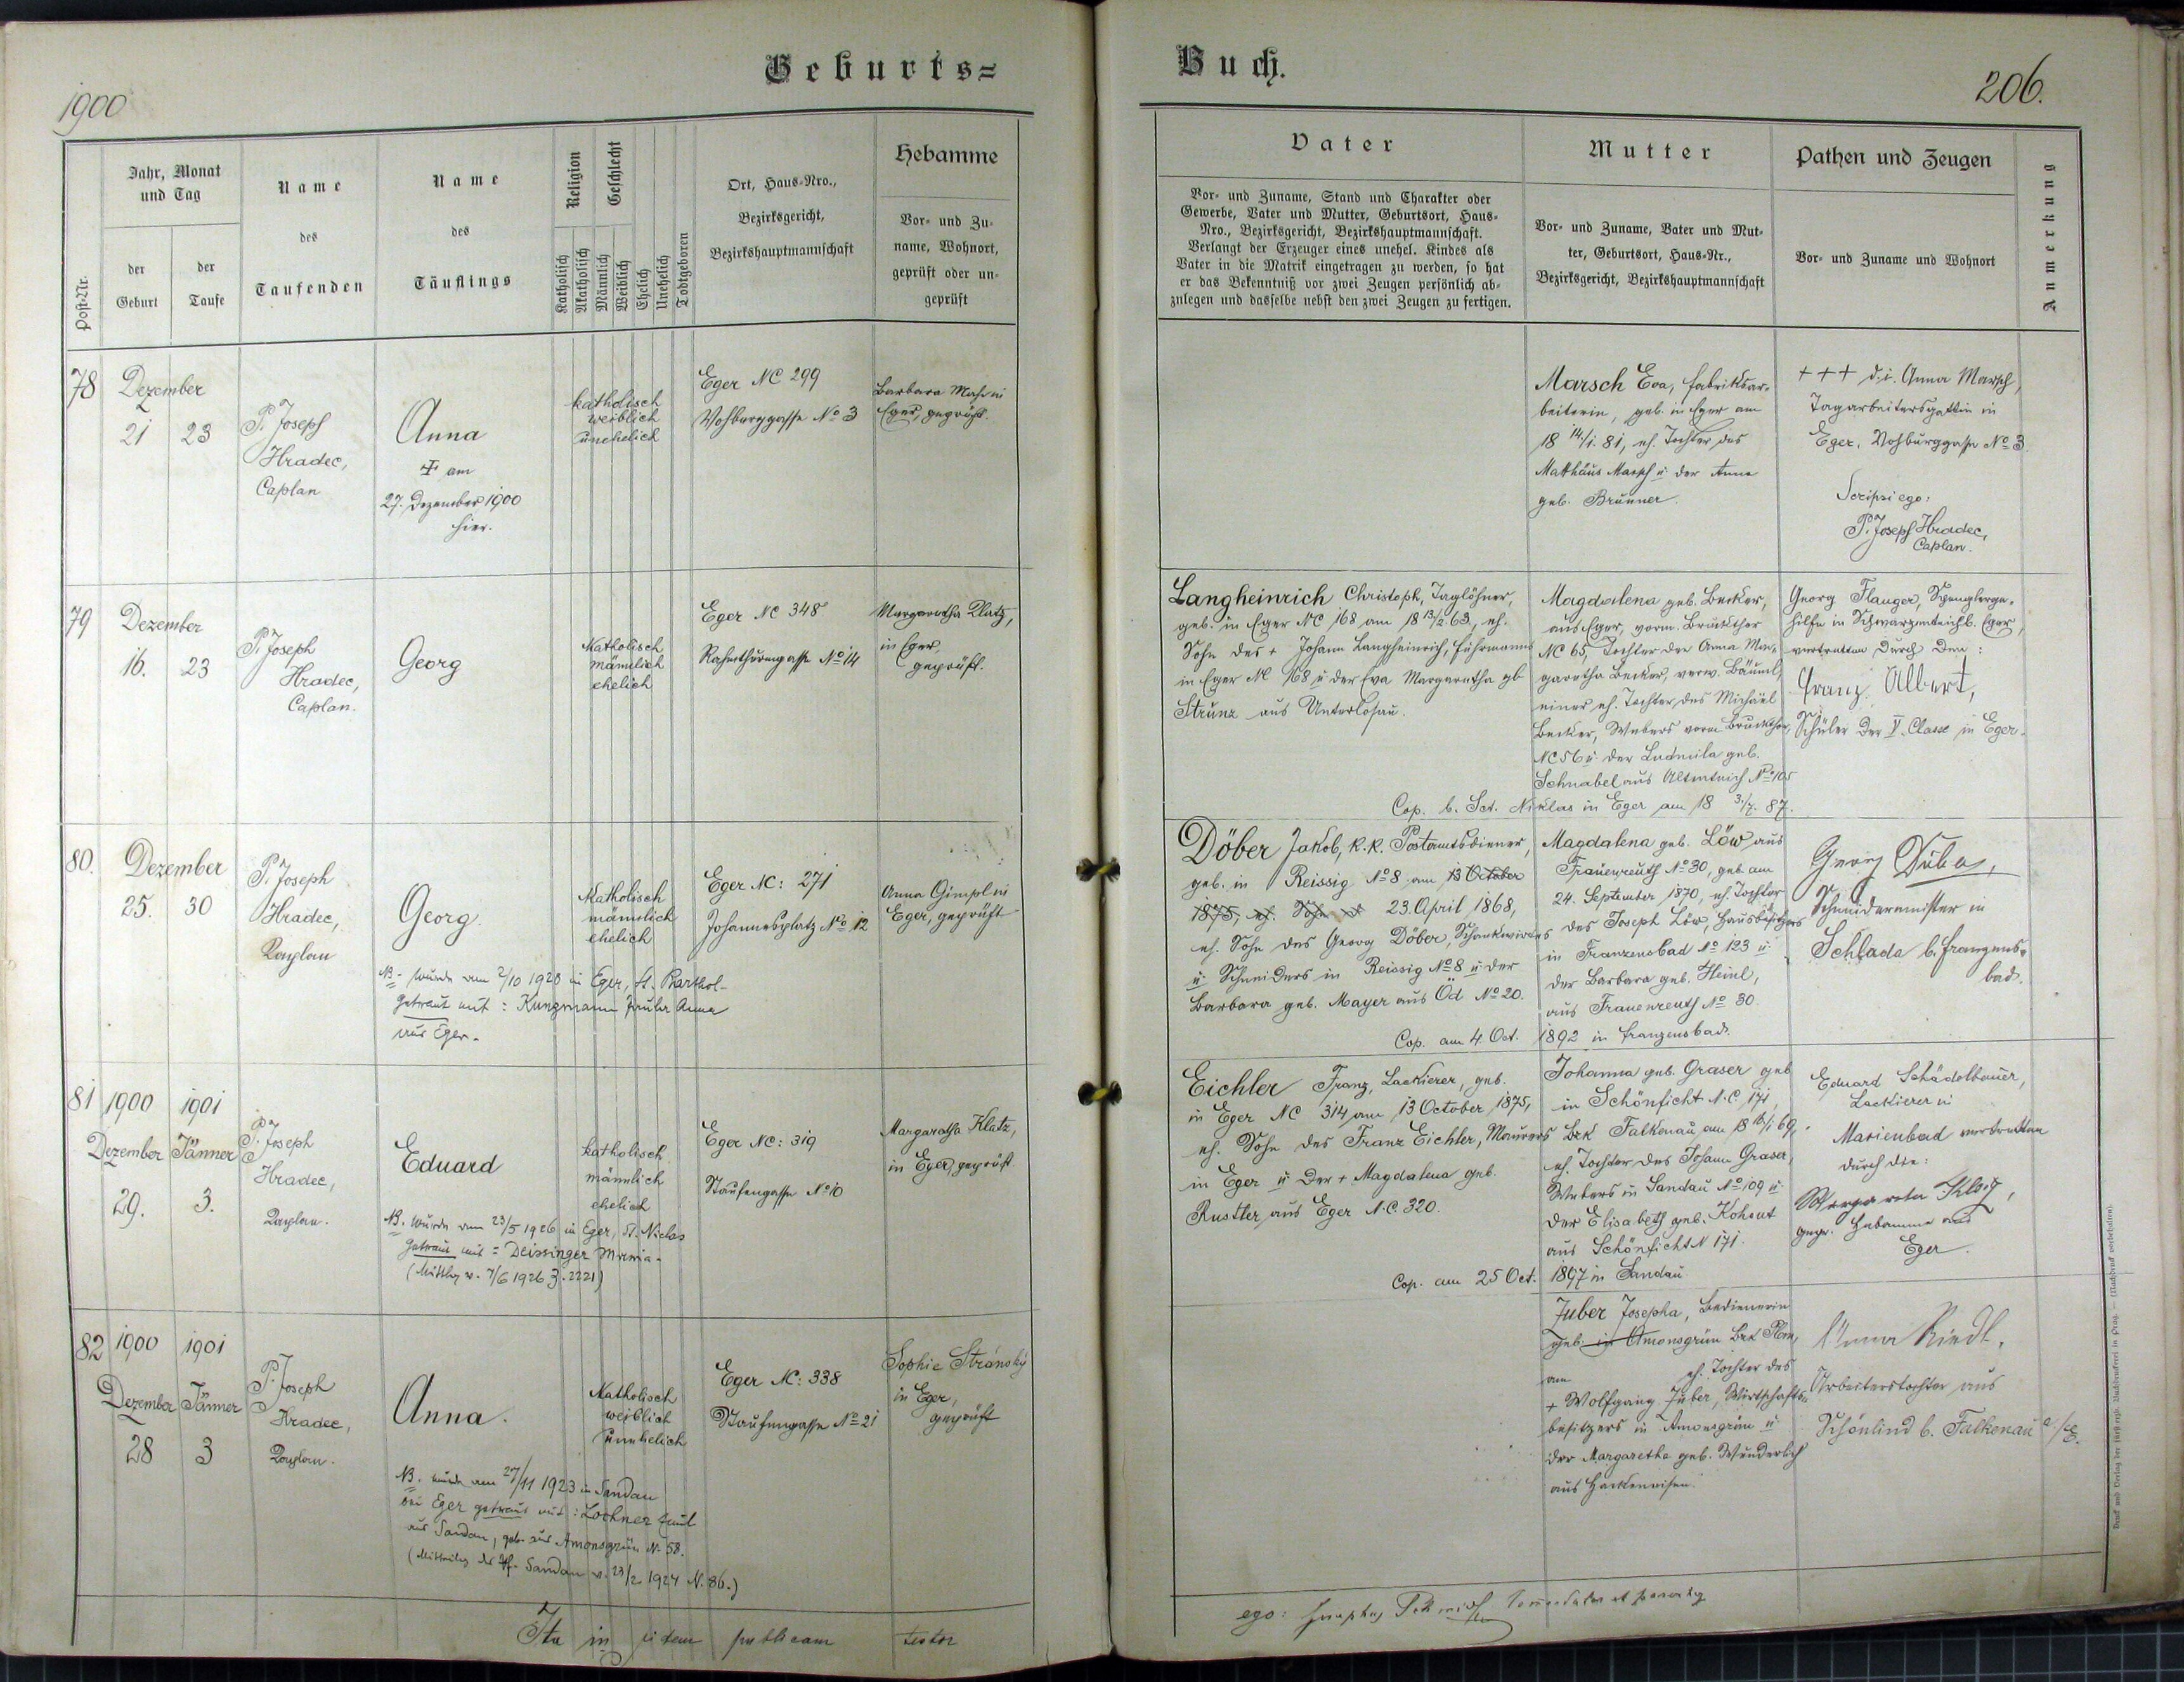 Geburts=
Buch.
1900
206.
Post-Nr.
Jahr, Monat
und Tag
der
Geburt
der
Taufe
Name
des
Taufenden
Name
des
Täuflings
Religion
Katholisch
Akatholisch
Geschlecht
Männlich
Weiblich
Ehelich
Unehelich
Todtgeboren
Ort, Haus-Nro.,
Bezirksgericht,
Bezirkshauptmannschaft
Hebamme
Vor- und Zu-
name, Wohnort,
geprüft oder un-
geprüft
Vater
Vor- und Zuname, Stand und Charakter oder
Gewerbe, Vater und Mutter, Geburtsort, Haus-
Nro., Bezirksgericht, Bezirkshauptmannschaft.
Verlangt der Erzeuger eines unehel. Kindes als
Vater in die Matrik eingetragen zu werden, so hat
er das Bekenntniß vor zwei Zeugen persönlich ab-
zulegen und dasselbe nebst den zwei Zeugen zu fertigen.
Mutter
Vor- und Zuname, Vater und Mut-
ter, Geburtsort, Haus-Nr.,
Bezirksgericht, Bezirkshauptmannschaft
Pathen und Zeugen
Vor- und Zuname und Wohnort
Anmerkung
78
Dezember
21 23
P. Joseph
Hradec,
Caplan
Anna
† am
27. Dezember 1900
hier.
katholisch
weiblich
unehelich
Eger NC 299
Vohburggasse No 3
Barbara in
Eger, geprüft.
Marsch Eva, Fabriksar-
beiterin, geb. in Eger am
18 14/1. 81, eh. Tochter des
Mathäus Marsch u der Anna
geb. Brunner.
+++ d. i. Anna Marsch,
Tagarbeitersgattin in
Eger, Vohburggasse No 3.
Scripsi ego:
P. Joseph Hradec,
Caplan.
79
Dezember
16. 23
P. Joseph
Hradec,
Caplan.
Georg
Katholisch
männlich
ehelich
Eger NC 348
Rahmthurmgasse No 14
Margaretha Klatz,
in Eger,
geprüft.
Langheinrich Christoph, Taglöhner,
geb. in Eger NC 168 am 18 13/2. 63, eh.
Sohn des + Johann Langheinrich, Fuhrmanns
in Eger NC 168 u der Eva Margaretha gb
Strunz aus Unterlosau.
Magdalena geb. Becker,
aus Eger, vorm. Bruckthor
NC 65, Tochter der Anna Mar-
garetha Becker, verw. Bäuml,
einer eh. Tochter des Michael
Becker, Webers vorm Bruckthor
NC 56 u. der Ludmila geb.
Schnabel aus Altenteich No 105
Cop. b. Sct. Niklas in Eger am 18 31/7. 87.
Georg Flauger, Spenglerge-
hilfe in Schwarzenteich b. Eger,
vertretten durch den:
Franz Albert,
Schüler der V. Classe in Eger.
80.
Dezember
25. 30
P. Joseph
Hradec,
Kaplan
Georg
Katholisch
männlich
ehelich
Eger NC: 271
Johannesplatz No 12
Anna Gimpl in
Eger, geprüft
NB - wurde am 2/10 1920 in Eger, St. Barthol-
getraut mit: Kungmann Paula Anna
aus Eger.
Döber Jakob, k. k. Postamtsdiener,
geb. in Reissig No 8 am 13 October
1875, eh. Sohn 23. April 1868,
eh. Sohn des Georg Döber, Schankwirtes
u. Schneiders in Reissig No 8 u der
Barbara geb. Mayer aus Öd No 20.
Magdalena geb. Löw aus
Frauenreuth No 30, geb. am
24. September 1870, eh. Tochter
des Joseph Löw, Hausbesitzers
in Franzensbad No 123 u
der Barbara geb. Heinl,
aus Frauenreuth No 30.
Cop. am 4. Oct. 1892 in Franzensbad.
Georg
Schneidermeister in
Schlada b. Franzens-
bad.
81
1900 1901
Dezember Jänner
29. 3.
P. Joseph
Hradec,
Kaplan.
Eduard
katholisch
männlich
ehelich
Eger NC: 319
Staufengasse No 10
Margaratha Klatz,
in Eger, geprüft
NB. wurde am 23/5 1926 in Eger, St. Niclas
getraut mit = Deissinger Maria.
(Mittlg v. 7/6 1926 Z. 2221)
Eichler Franz, Lackierer, geb.
in Eger NC 314 am 13 October 1875,
eh. Sohn des Franz Eichler, Maurers
in Eger u der + Magdalena geb.
Rustler aus Eger N. C. 320.
Johanna geb. Graser geb
in Schönficht N. C. 171,
Bzk Falkenau, am 69,
eh. Tochter des Johann Graser,
Webers in Sandau No 109 u
der Elisabeth geb. Kohout
aus Schönficht N 171.
Cop. am 25 Oct. 1897 in Sandau
Eduard Schädelbauer,
Lackierer in
Marienbad vertretten
durch die:
Margareta Klatz,
gepr. Hebamme aus
Eger.
82
1900 1901
Dezember Jänner
28 3
P. Joseph
Hradec,
Kaplan.
Anna.
Katholisch
weiblich
unehelich
Eger NC: 338
Staufengasse No 21
Sophie Stránský
in Eger,
geprüft
NB. wurde am 27/11 1923 in Sandau
bei Eger getraut mit: Lochner Paul
aus Sandau, geb. aus Amonsgrün N. 58.
(Mitteilg des Pf. Sandau v. 23/2. 1924 N. 86.)
Zuber Josepha, Bedienerin
geb. in Amonsgrün Bzk Plan,
am eh. Tochter des
+ Wolfgang Zuber, Wirtschafts-
besitzers in Amonsgrün u
der Margaretha geb. Wunderlich
aus
Anna Riedl,
Arbeiterstochter aus
Schönlind b. Falkenau a/E.
Ita in fidem publicam testor
ego: Josephus
Druck und Verlag der fürst-erzb. Buchdruckerei in Prag. — (Nachdruck vorbehalten).